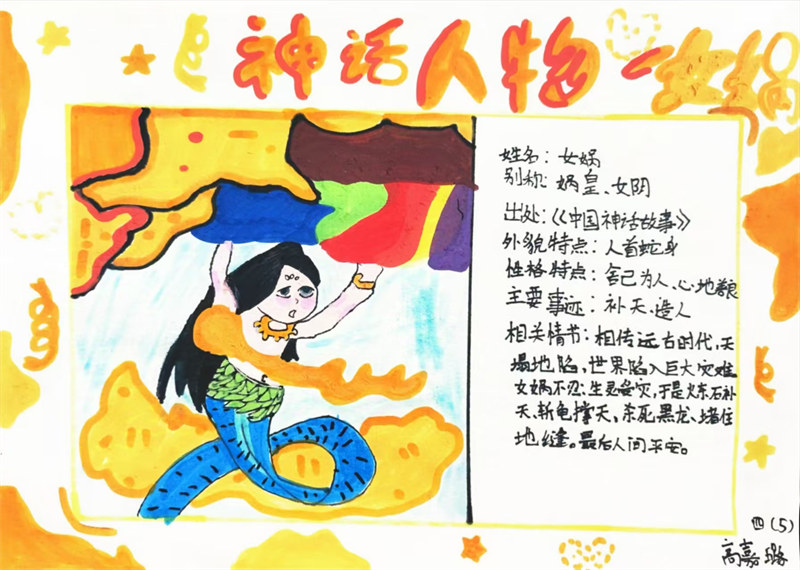 神话人物-女娲
姓名：女娲
别称：娲皇、女阴
出处：《中国神话故事》
外貌特点：人首蛇身
性格特点：舍己为人、心地
主要事迹：补天、造人
相关情节：相传远古时代，天
塌地陷，世界陷入巨大灾难
女娲不忍生灵受灾，于是炼石补
天、斩龟撑天、杀死黑龙、堵住
地缝。最后人间平安。
四(5)
高嘉璐